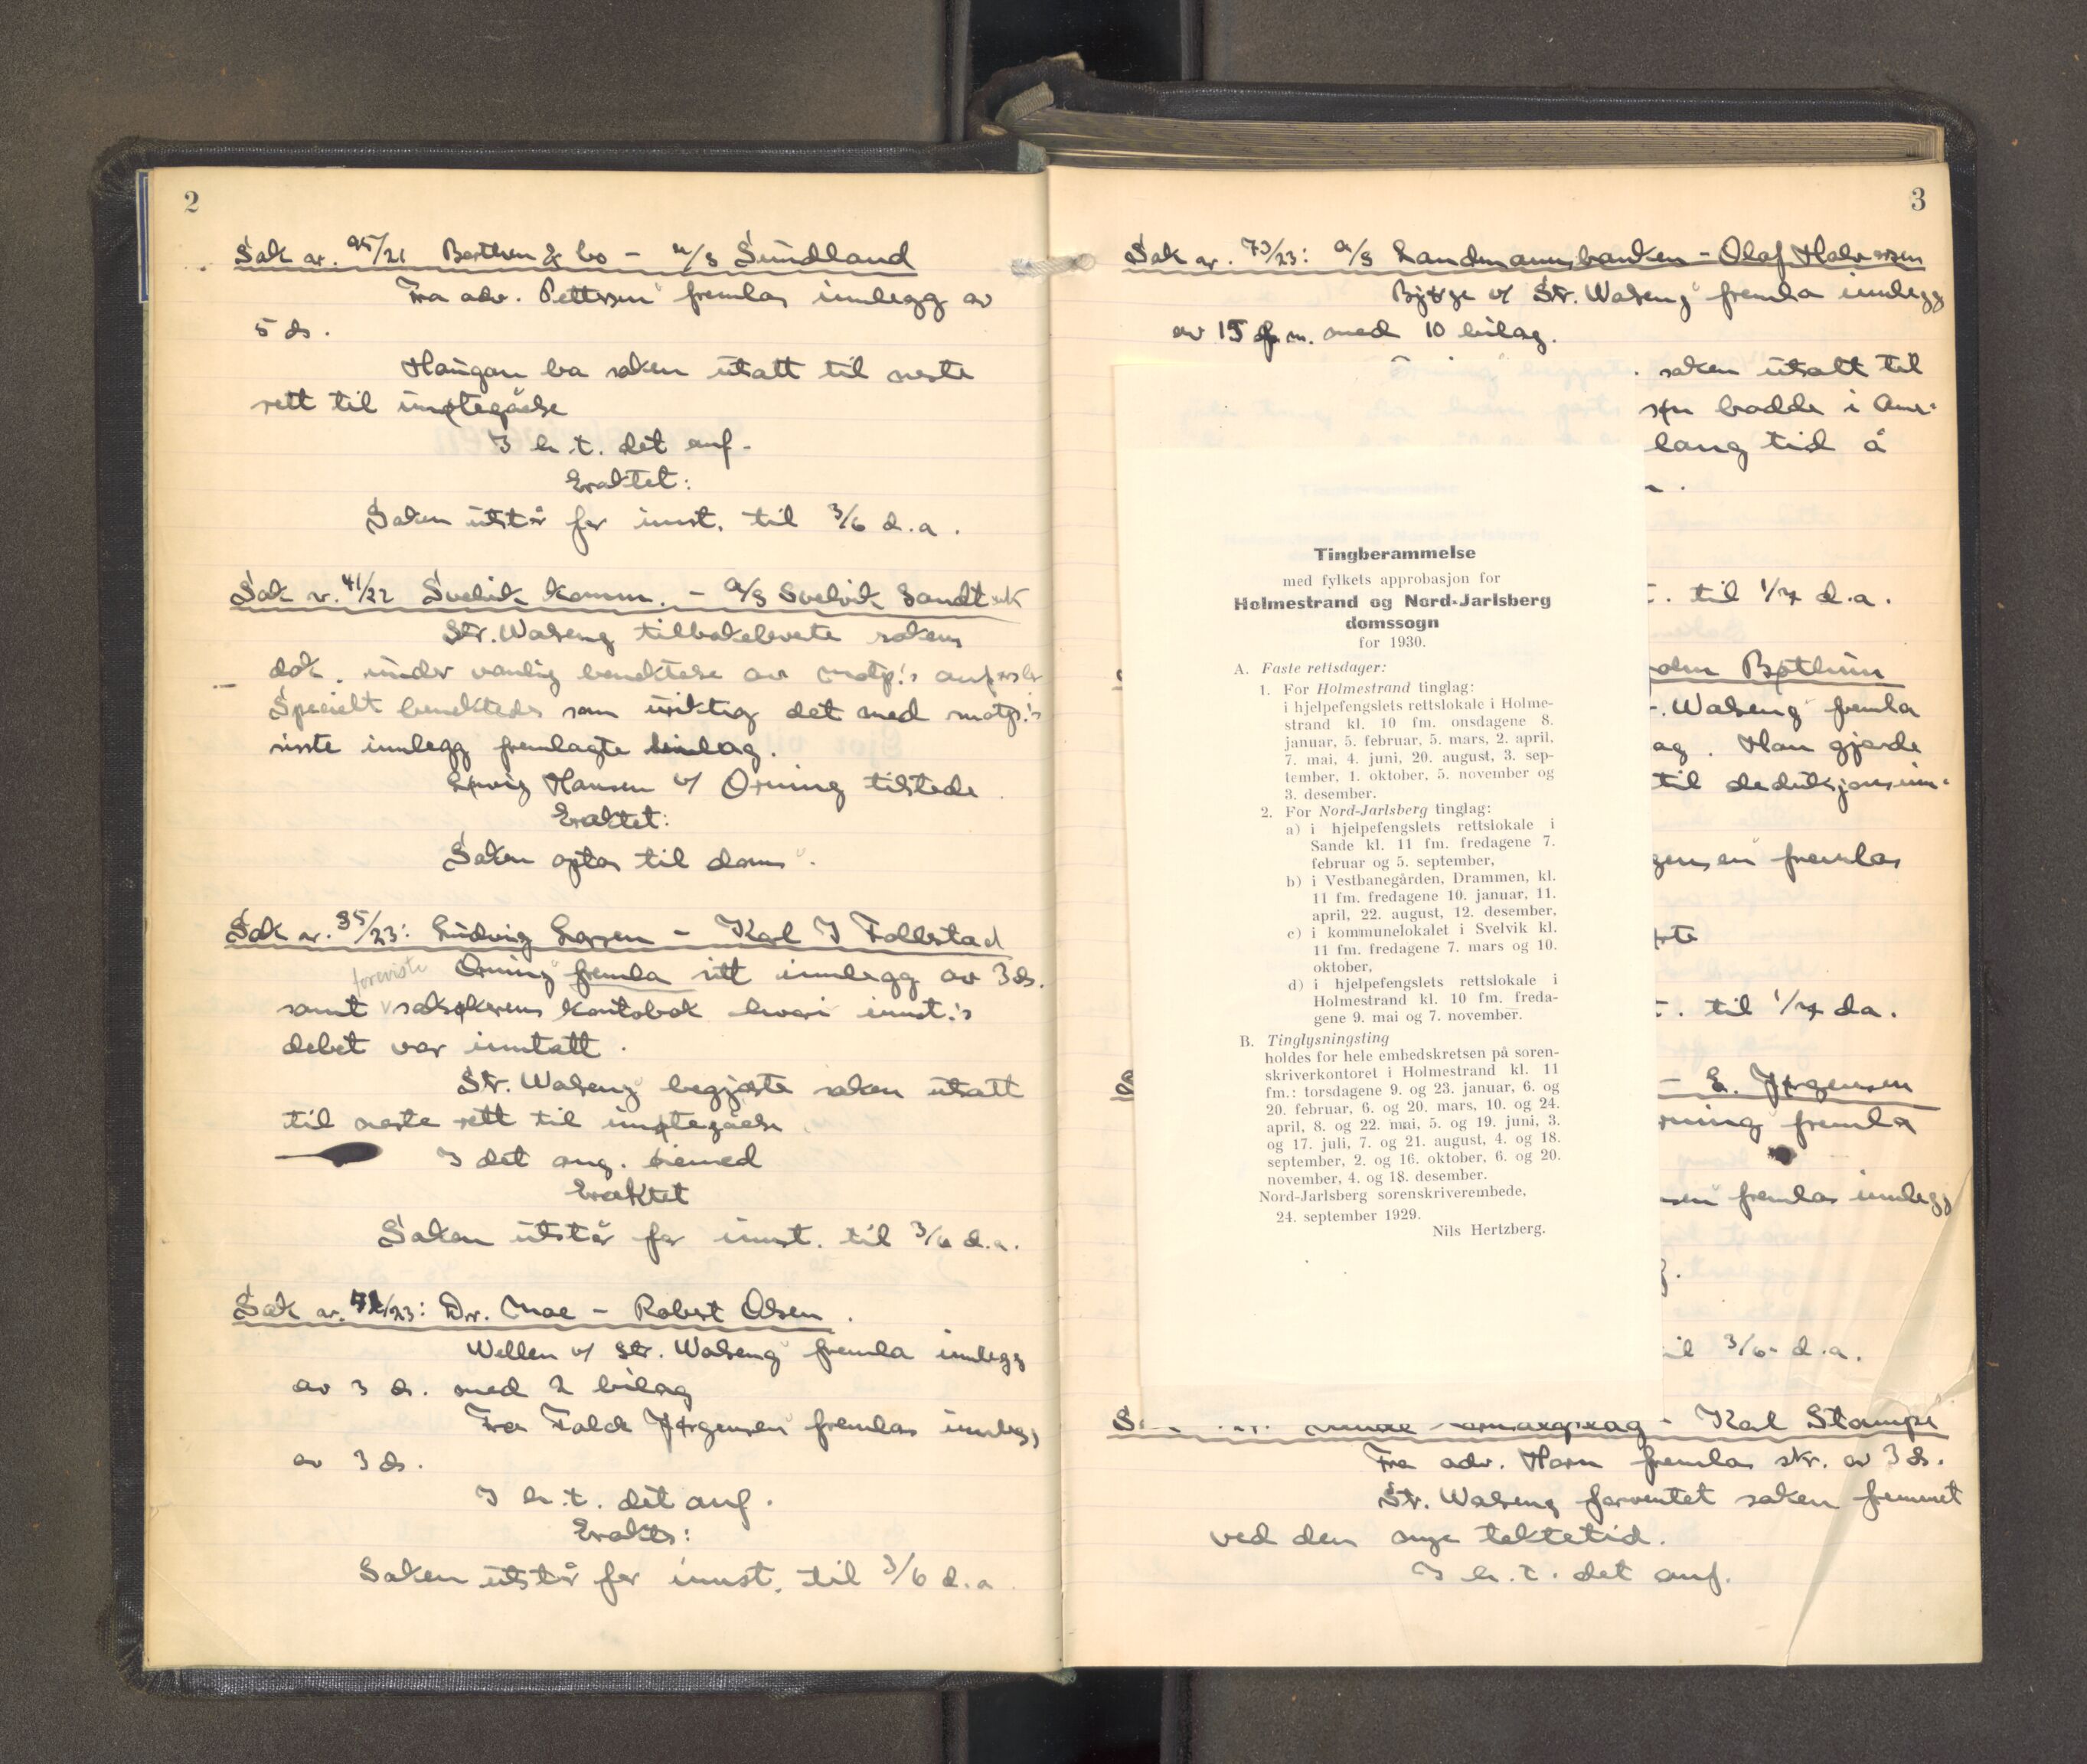 2
Sak nr. 95/21 Berthen & Co - A/S Sundland
Fra adv. Pettersen fremlas innlegg av
5 ds.
Haugan ba saken utsatt til neste
rett til imøtegåelse
I h. t. det anf.
Eraktet:
Saken utstår for innst. til 3/6 d.a.
Sak nr. 41/22 Svelvik komm. - A/S Svelvik Sandtak
Str. Walseng tilbakeleverte sakens
dok. under vanlig benektelse av motp.'s anførsler
Specielt benektedes som uriktig det med motp.'s
siste innlegg fremlagte bilag.
Hansen v/ Orning tilstede.
Eraktet:
Saken optas til doms.
Sak nr. 35/23: Ludvig Larsen - Karl J Follestad
Orning fremla sitt innlegg av 3 ds.
foreviste
samt saksøkerens kontobok hvori innst.'s
debet var inntatt.
Str. Walseng begjærte saken utsatt
til neste rett til imøtegåelse
I det ang. hermed
Eraktet
Saken utstår for innst. til 3/6 d.a.
Sak nr. 71/23: Dr. Moe - Robert Olsen.
Wellen v/ str. Walseng fremla innlegg
av 3 ds. med 2 bilag
Fra Falde Jørgensen fremlas innlegg
av 3 ds.
I h. t. det anf.
Eraktes:
Saken utstår for innst. til 3/6 d.a
3
Sak nr. 73/23: A/S Landmannsbanken - Olaf Halvorsen
Bjørge v/ Str. Walseng fremla innlegg
av 15 f.m. med 10 bilag.
saken utsatt til
bodde i Ame-
lang tid å
til 1/7 d.a.
Bøthun
Walseng fremla
Han gjorde
til deduksjonsinn-
fremlas
til 1/7 da.
- E. Jørgensen
fremla
fremlas innlegg
3/6 d.a.
- Karl Stampe
Fra adv. Horn fremlas skr. av 3 ds.
Str. Walseng forventet saken fremmet
ved den nye tektetid.
I h. t. det anf.
Tingberammelse
med fylkets approbasjon for
Holmestrand og Nord-Jarlsberg
domssogn
for 1930.
A. Faste rettsdager:
1. For Holmestrand tinglag:
i hjelpefengslets rettslokale i Holme-
strand kl. 10 fm. onsdagene 8.
januar, 5. februar, 5. mars, 2. april,
7. mai, 4. juni, 20. august, 3. sep-
tember, 1. oktober, 5. november og
3. desember.
2. For Nord-Jarlsberg tinglag:
a) i hjelpefengslets rettslokale i
Sande kl. 11 fm. fredagene 7.
februar og 5. september,
b) i Vestbanegården, Drammen, kl.
11 fm. fredagene 10. januar, 11.
april, 22. august, 12. desember,
c) i kommunelokalet i Svelvik kl.
11 fm. fredagene 7. mars og 10.
oktober,
d) i hjelpefengslets rettslokale i
Holmestrand kl. 10 fm. freda-
gene 9. mai og 7. november.
B. Tinglysningsting
holdes for hele embedskretsen på soren-
skriverkontoret i Holmestrand kl. 11
fm.: torsdagene 9. og 23. januar, 6. og
20. februar, 6. og 20. mars, 10. og 24.
april, 8. og 22. mai, 5. og 19. juni, 3.
og 17. juli, 7. og 21. august, 4. og 18.
september, 2. og 16. oktober, 6. og 20.
november, 4. og 18. desember.
Nord-Jarlsberg sorenskriverembede,
24. september 1929.
Nils Hertzberg.